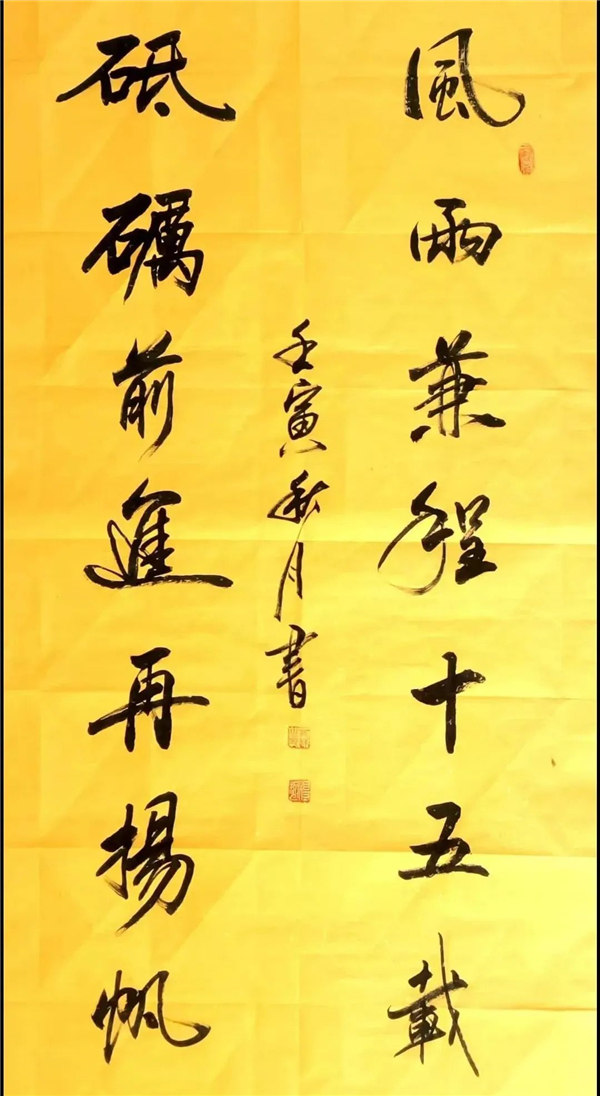 風雨兼程十五載
砥礪前進再揚帆
壬寅秋月書